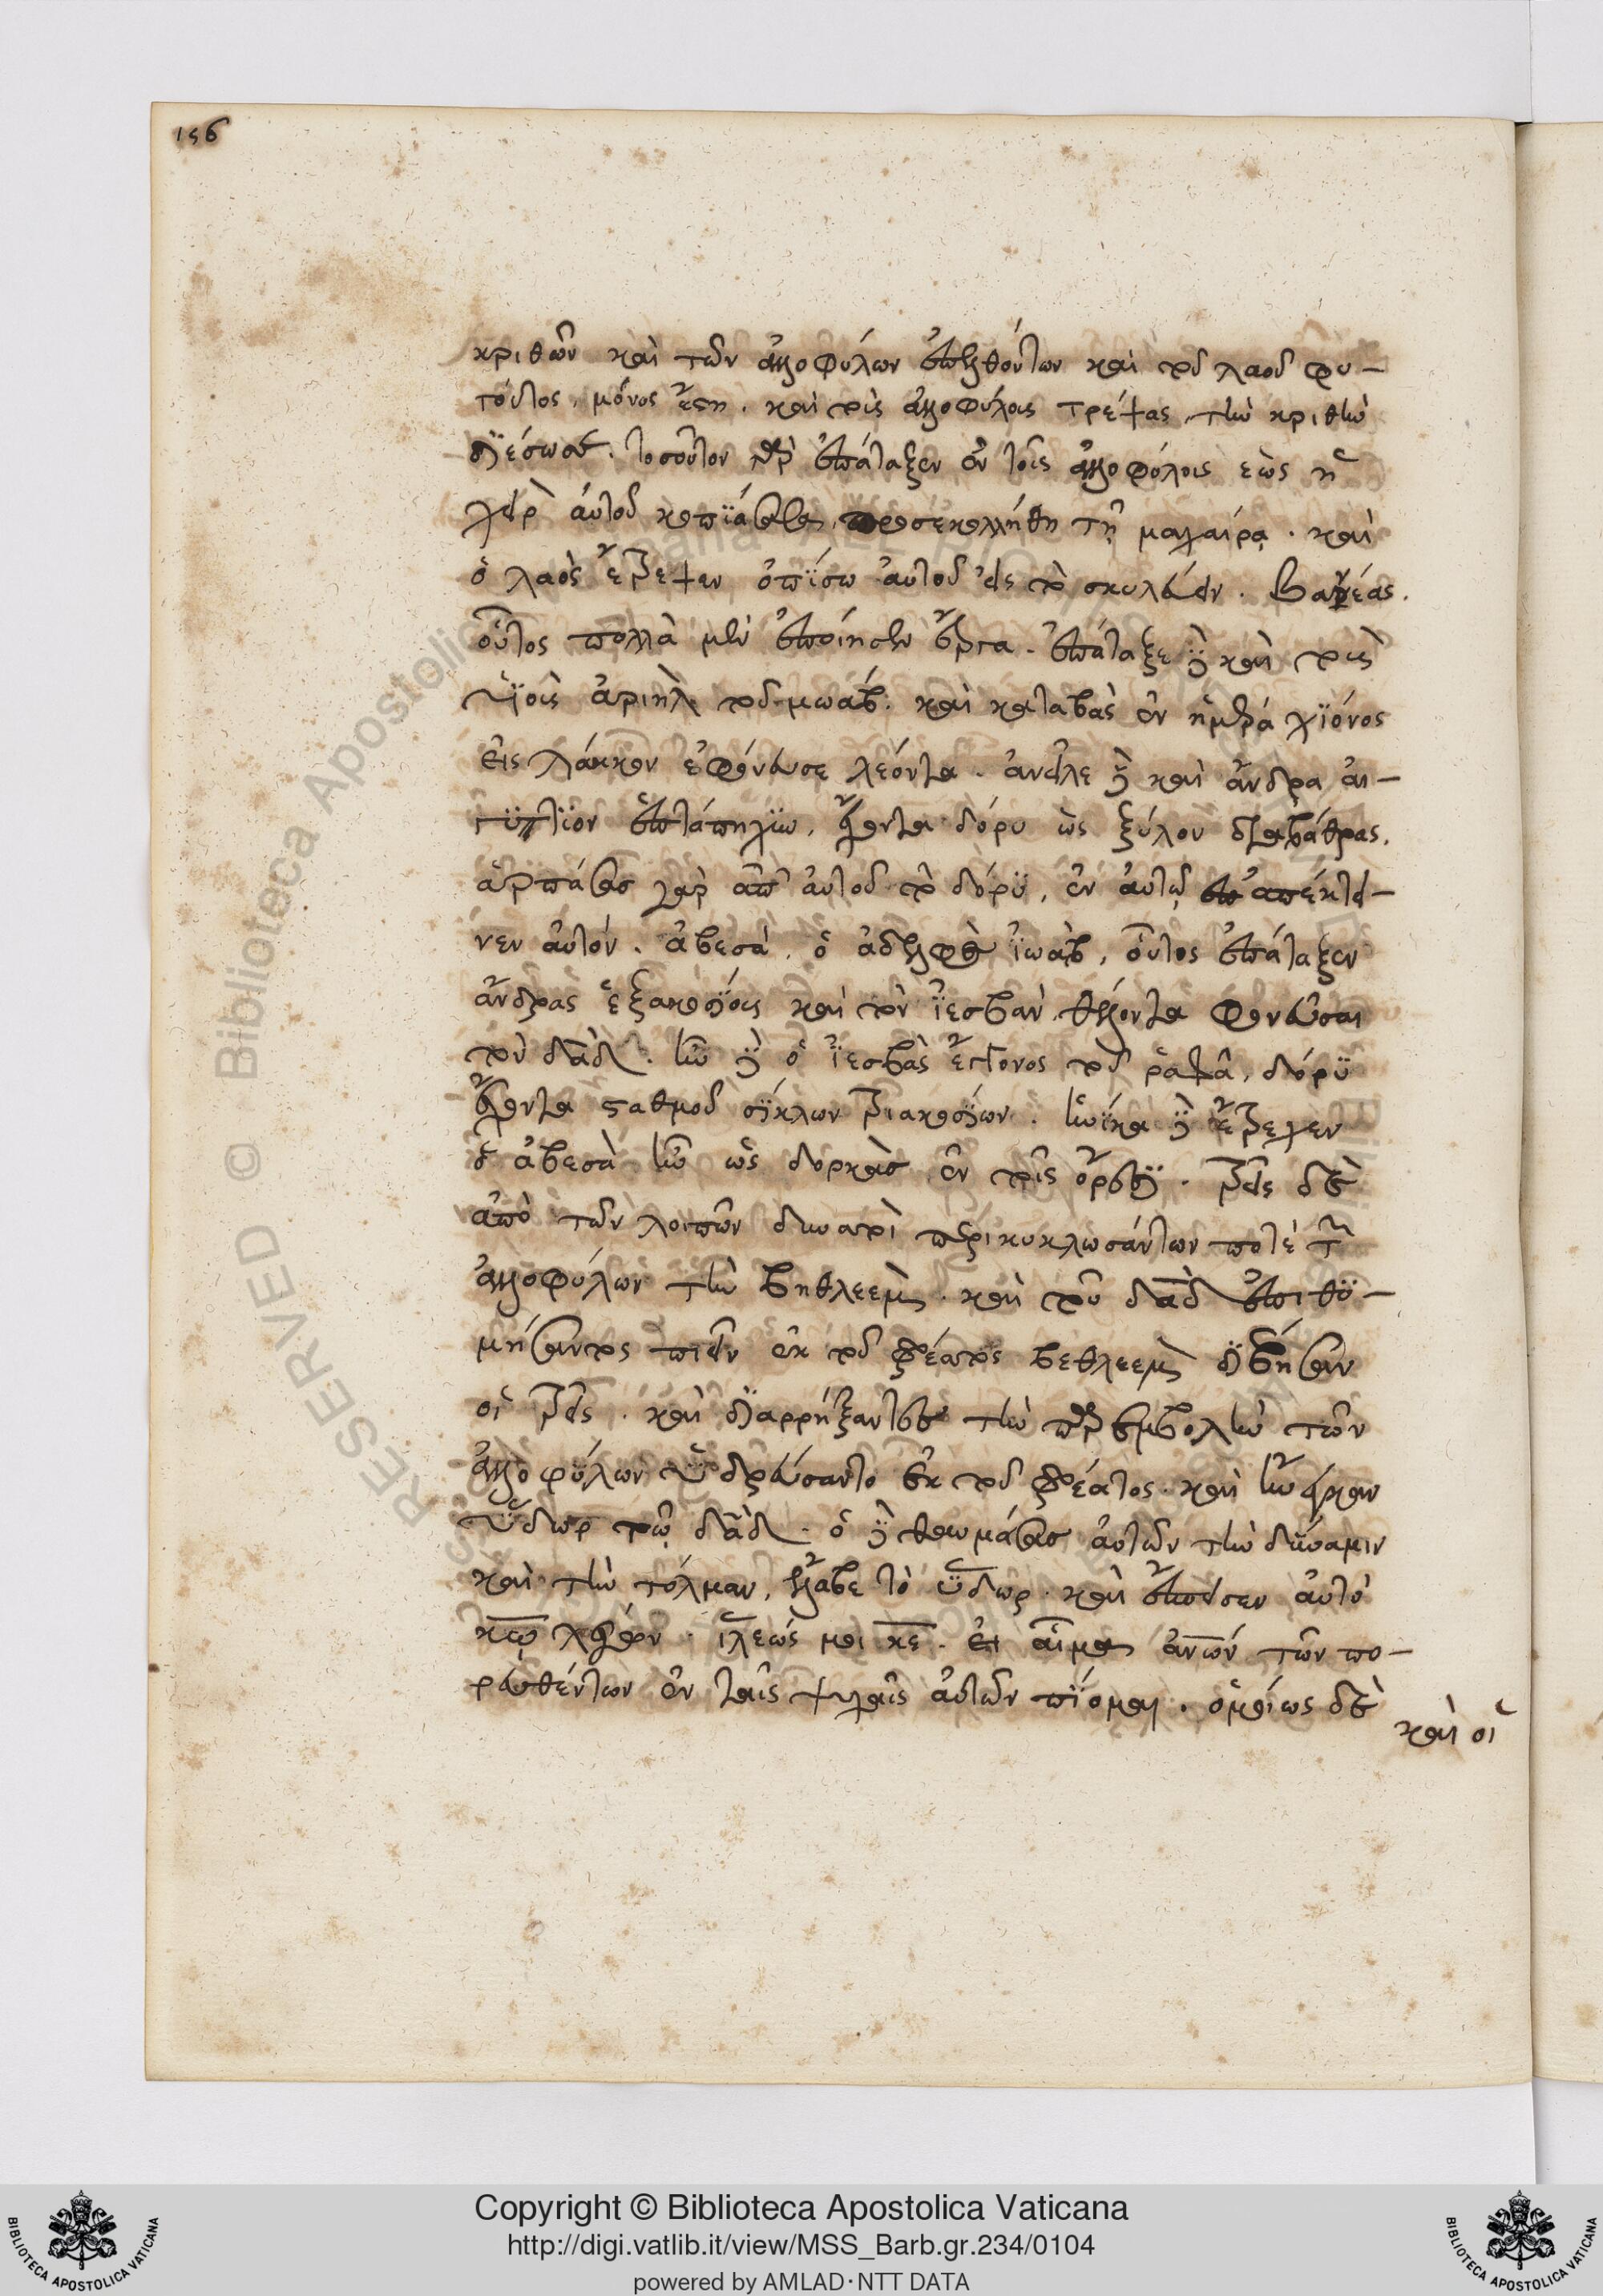 156
κριθῶν καὶ τῶν ἀλλοφύλων ἐπελθόντων καὶ τοῦ λαοῦ φυ-
γόντος, μόνος ἔστη. καὶ τοὺς ἀλλοφύλους τρέψας, τὴν κριθὴν
διέσωσε. τοσοῦτον γὰρ ἐπάταξεν ἐν τοῖς ἀλλοφύλοις ἕως ἡ
χεὶρ αὐτοῦ κοπϊάσασα, προσεκολλήθη τῇ μαχαίρᾳ. καὶ
ὁ λαὸς ἔτρεχεν ὀπίσω αὐτοῦ εἰς τὸ σκυλεύειν. Βανέας.
οὗτος πολλὰ μὲν ἐποίησεν ἔργα. ἐπάταξε δὲ καὶ τοὺς
υἱοὺς ἀριὴλ τοῦ μωάβ. καὶ καταβὰς ἐν ἡμέρα χϊόνος
εἰς λάκκον ἐφόνευσε λέοντα. ἀνεῖλε δὲ καὶ ἄνδρα αἰ-
γύπτϊον ἑπτάπηχϋν, ἔχοντα δόρυ ὡς ξύλον διαβάθρας.
ἁρπάσας γὰρ ἀπ' αὐτοῦ τὸ δόρϋ, ἐν αὐτῷ ἀπέκτει-
νεν αὐτόν. ἀβεσά, ὁ ἀδελφὸς ἰωάβ, οὗτος ἐπάταξεν
ἄνδρας ἑξακοσίους καὶ τὸν ἰεσβὰν θέλοντα φονεῦσαι
τὸν δᾱδ. ἦν δὲ ὁ ἰεσβὰς ἔκγονος τοῦ ῥαφᾶ, δόρϋ
ἔχοντα σταθμοῦ σίκλων τριακοσίων. ἡνίκα δὲ ἔτρεχεν
ὁ ἀβεσὰ ἦν ὡς δορκὰς ἐν τοῖς ὄρεσϊ. τρεῖς δὲ
ἀπὸ τῶν λοιπῶν δυνατοὶ περικυκλωσάντων ποτὲ τῶν
ἀλλοφύλων τὴν βηθλεὲμ. καὶ τοῦ δᾱδ ἐπιθϋ-
μήσαντος πιεῖν ἐκ τοῦ φρέατος βεθλεὲμ διέβησαν
οἱ τρεῖς. καὶ διαρρήξαντες τὴν παρεμβολὴν τῶν
ἀλλοφύλων ὑδρεύσαντο ἐκ τοῦ φρέατος. καὶ ἤνεγκαν
ὕδωρ τῷ δᾱδ. ὁ δὲ θαυμάσας αὐτῶν τὴν δύναμιν
καὶ τὴν τόλμαν, ἔλαβε τὸ ὕδωρ. καὶ ἔσπεισεν αὐτὸ
κ̅ω̅ λέγων. ἵλεώς μοι κ̅ε̅. εἰ αἷμα ἀν̅ω̅ν τῶν πο-
ρευθέντων ἐν ταῖς ψυχαῖς αὐτῶν πίομαι. ὁμοίως δὲ
καὶ οἱ
RESERVED © Biblioteca Apostolica
Copyright © Biblioteca Apostolica Vaticana
http://digi.vatlib.it/view/MSS_Barb.gr.234/0104
powered by AMLAD·NTT DATA
BIBLIOTECA APOSTOLICA VATICANA
BIBLIOTECA APOSTOLICA VATICANA